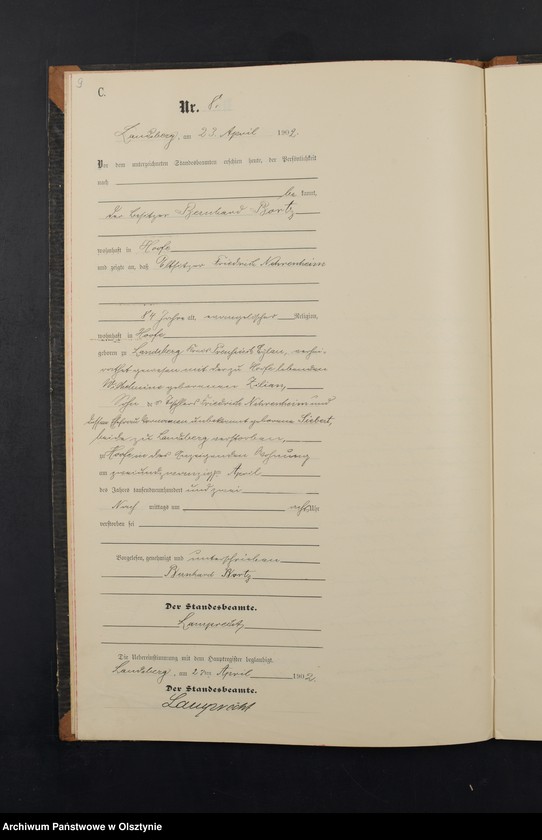 9
C.
Nr. 8.
Landsberg, am 23. April 1902.
Vor dem unterzeichneten Standesbeamten erschien heute, der Persönlichkeit
nach
be kannt,
der Besitzer Bernhard Bortz
wohnhaft in
und zeigte an, daß Friedrich
Jahre alt, evangelischer Religion,
wohnhaft in
geboren zu Landsberg Kreis Preußisch Eylau, verhei-
rathet gewesen mit der zu lebenden
Wilhelmine geborenen Zilian,
Sohn des Friedrich und
dessen Ehefrau Vornamen unbekannt geborene Siebert,
beide zu Landsberg verstorben,
in der Anzeigenden Wohnung
am zweiundzwanzigsten April
des Jahres tausendneunhundert und zwei
Nach mittags um Uhr
verstorben sei
Vorgelesen, genehmigt und unterschrieben
Bernhard Bortz
Der Standesbeamte.
Lamprecht
Die Uebereinstimmung mit dem Hauptregister beglaubigt.
Landsberg, am 23ten April 1902.
Der Standesbeamte.
Lamprecht
Archiwum Państwowe w Olsztynie